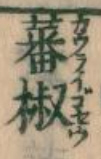 蕃椒
カウライゴセウ